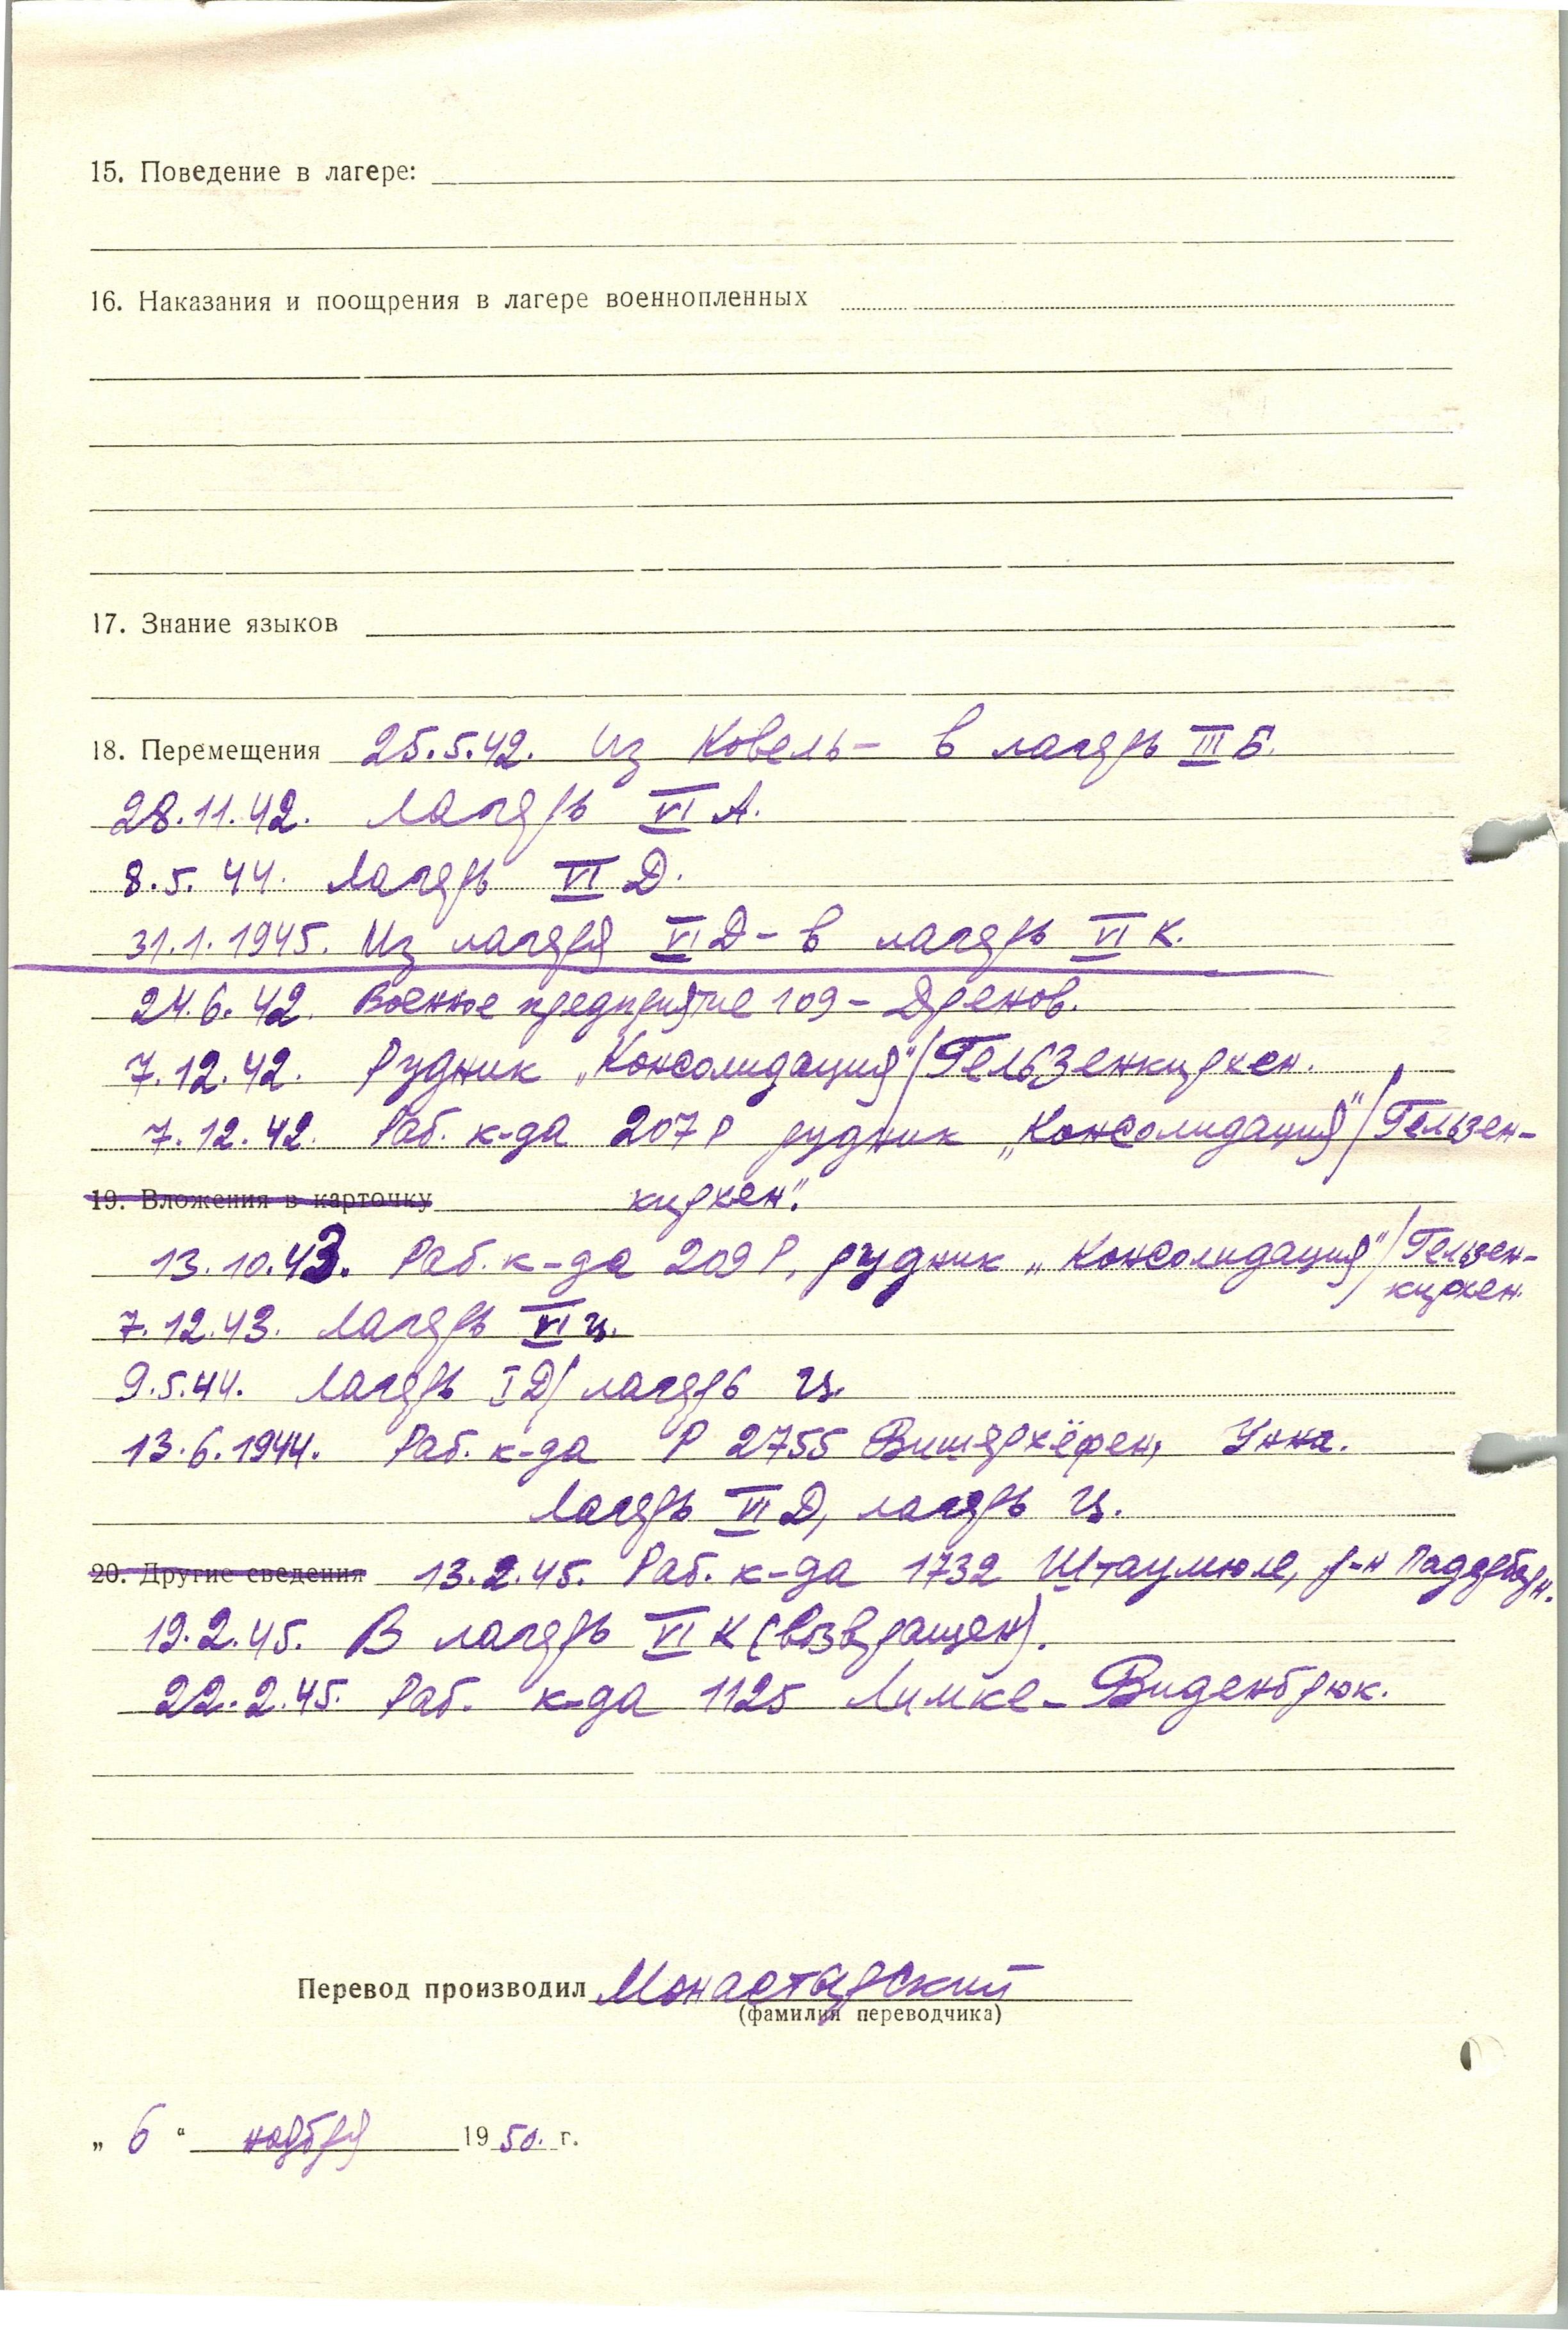 15. Поведение в лагере:
16. Наказания и поощрения в лагере военнопленных
17. Знание языков
18. Перемещения 25.5.42. Из Ковель – в лагерь III Б.
28.11.42. Лагерь VI А.
8.5.44. Лагерь VI Д.
31.1.1945. Из лагеря VI Д – в лагерь VI К.
24.6.42. Военное предприятие 109 – Дренов.
7.12.42. Рудник „Консолидация"/Гельзенкирхен.
7.12.42. Раб. к-да 207 Р рудник „Консолидация"/Гельзен-
19. Вложения в карточку кирхен".
13.10.43. Раб. к-да 209 Р, рудник „Консолидация"/Гельзен-
кирхен.
7.12.43. Лагерь VI ц.
9.5.44. Лагерь I Д/лагерь ц.
13.6.1944. Раб. к-да Р 2755 Вишерхёфен, Унна.
Лагерь VI Д, лагерь ц.
20. Другие сведения 13.2.45. Раб. к-да 1732 Штаумюле, р-н Падерборн.
19.2.45. В лагерь VI К (возвращен).
22.2.45. Раб. к-да 1125 Лимке-Виденбрюк.
Перевод производил Монастырский
(фамилия переводчика)
„ 6 " ноября 1950. г.